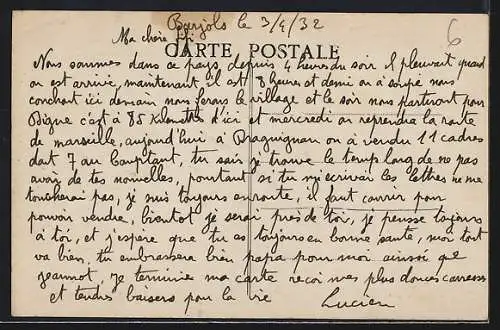 Barjols le 3/4/32
6
Ma chère
CARTE POSTALE
Nous sommes dans ce pays, depuis 4 heures du soir il pleuvait quand
on est arrivé, maintenant il est 8 heures et demi on a soupé nous
couchont ici demain nous ferons le village et le soir nous partiront pour
Digne c'est à 85 kilomètres d'ici et mercredi on reprendra la route
de marseille, aujourd'hui à Draguignan on à vendu 11 cadres
dont 7 au comptant, tu sais je trouve le temps long de ne pas
avoir de tes nouvelles, pourtant si tu m'écrivais les lettres ne me
toucherai pas, je suis toujours en route, il faut courrir pour
pouvoir vendre, bientot je serai près de toi, je pense toujours
à toi, et j'espère que tu as toujours en bonne santé, moi tout
va bien, tu embrassera bien papa pour moi ainsi que
jeannot, je termine ma carte recoi mes plus douces caresses
et tendres baisers pour la vie
Lucien